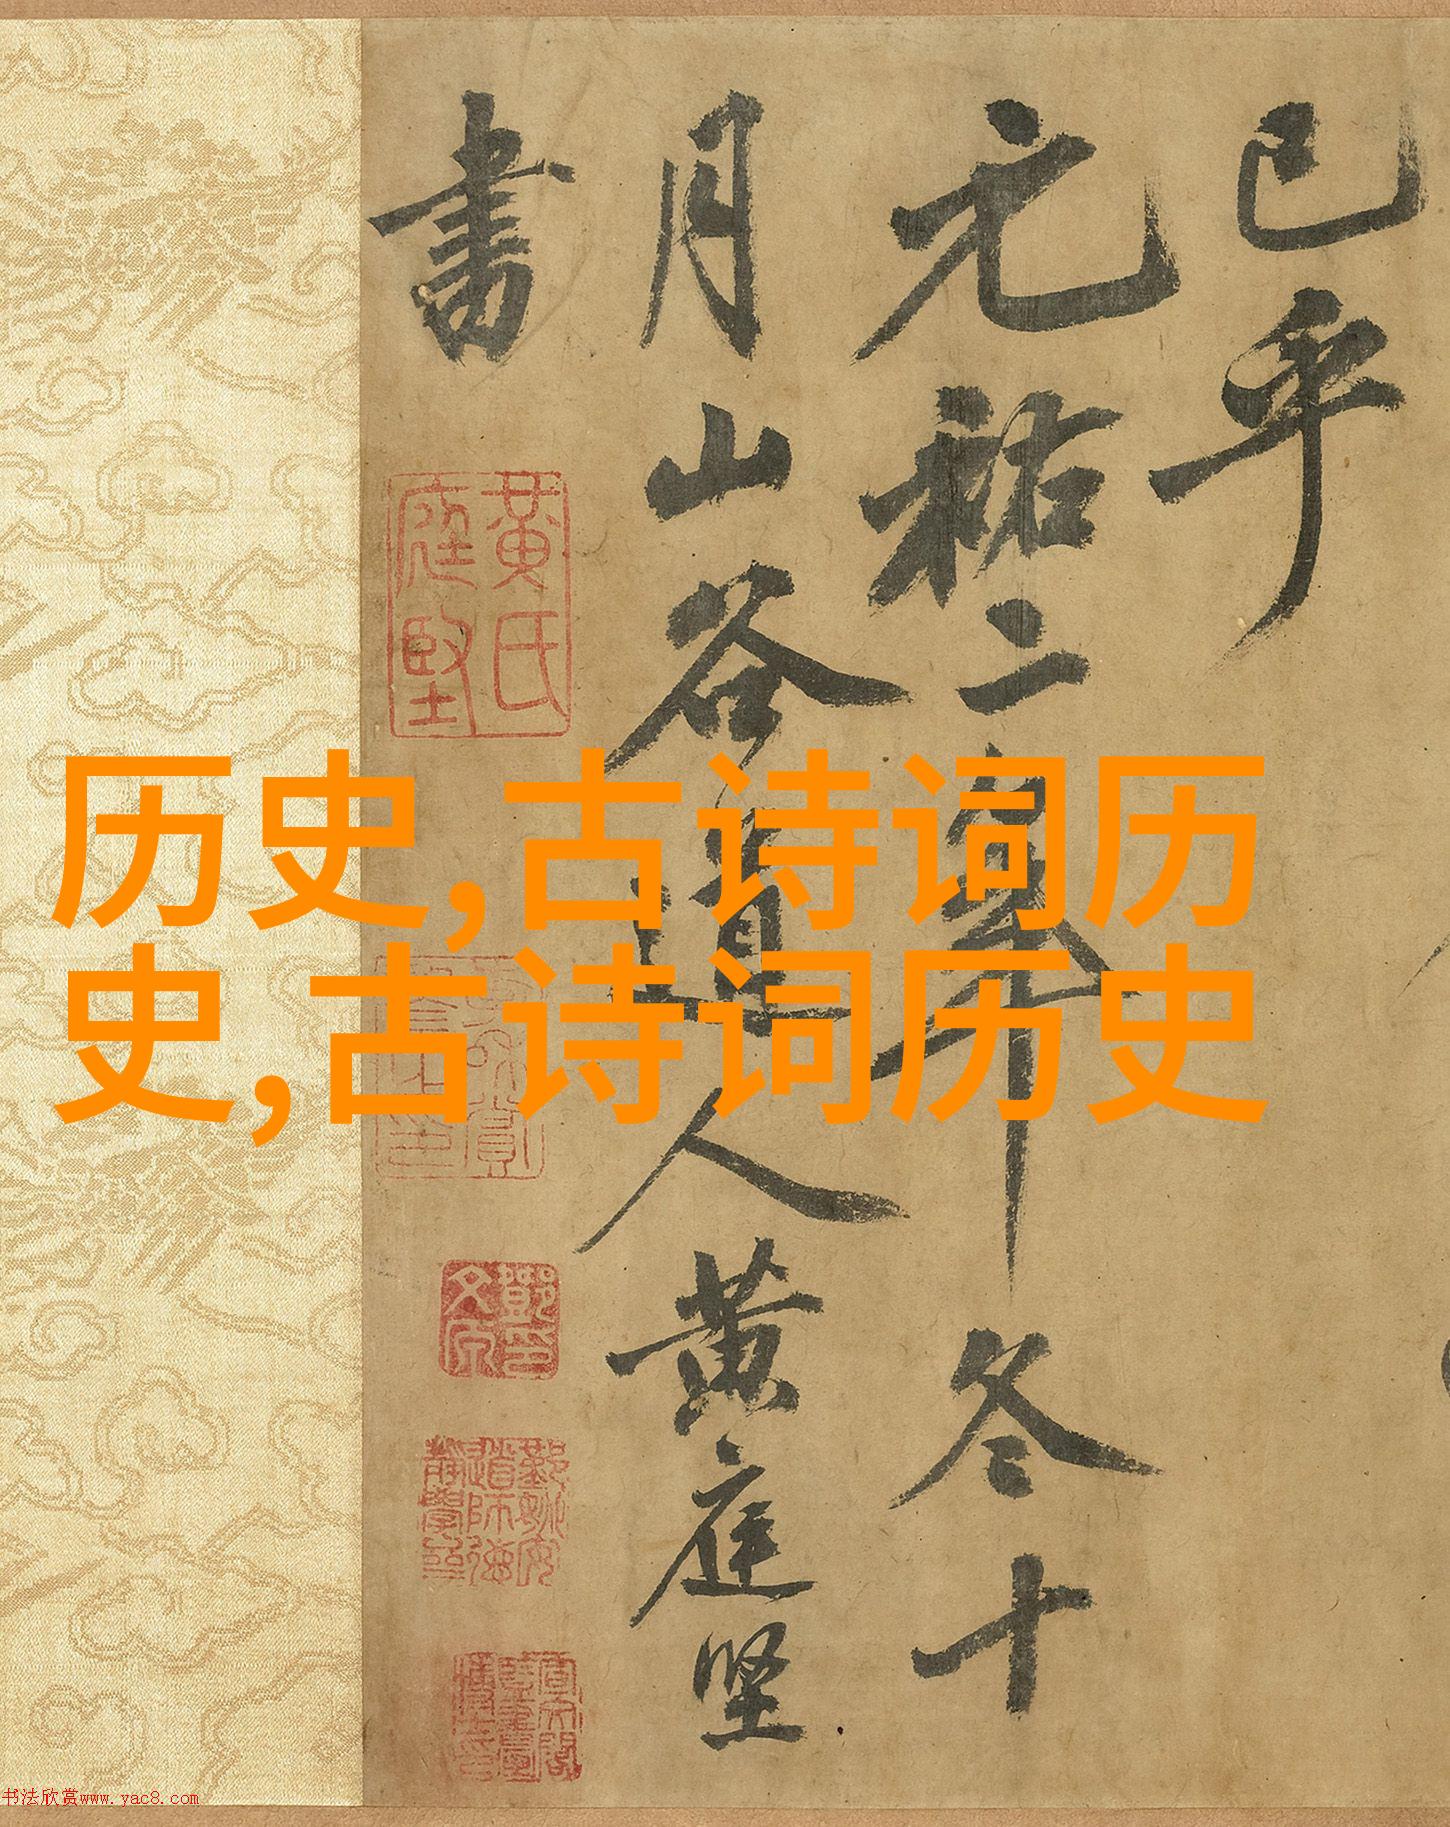 已乎
元祐二年冬十
月山谷道人黄庭坚
書
黄氏庭堅
历史,古诗词历
史,古诗词历史
书法欣赏www.yac8.com